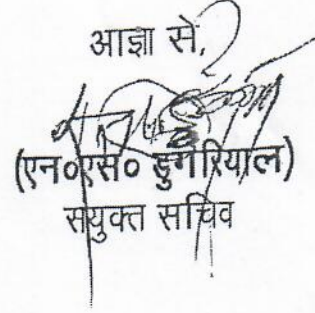 आज्ञा से,
(एन०एस० डुंगरियाल)
संयुक्त सचिव